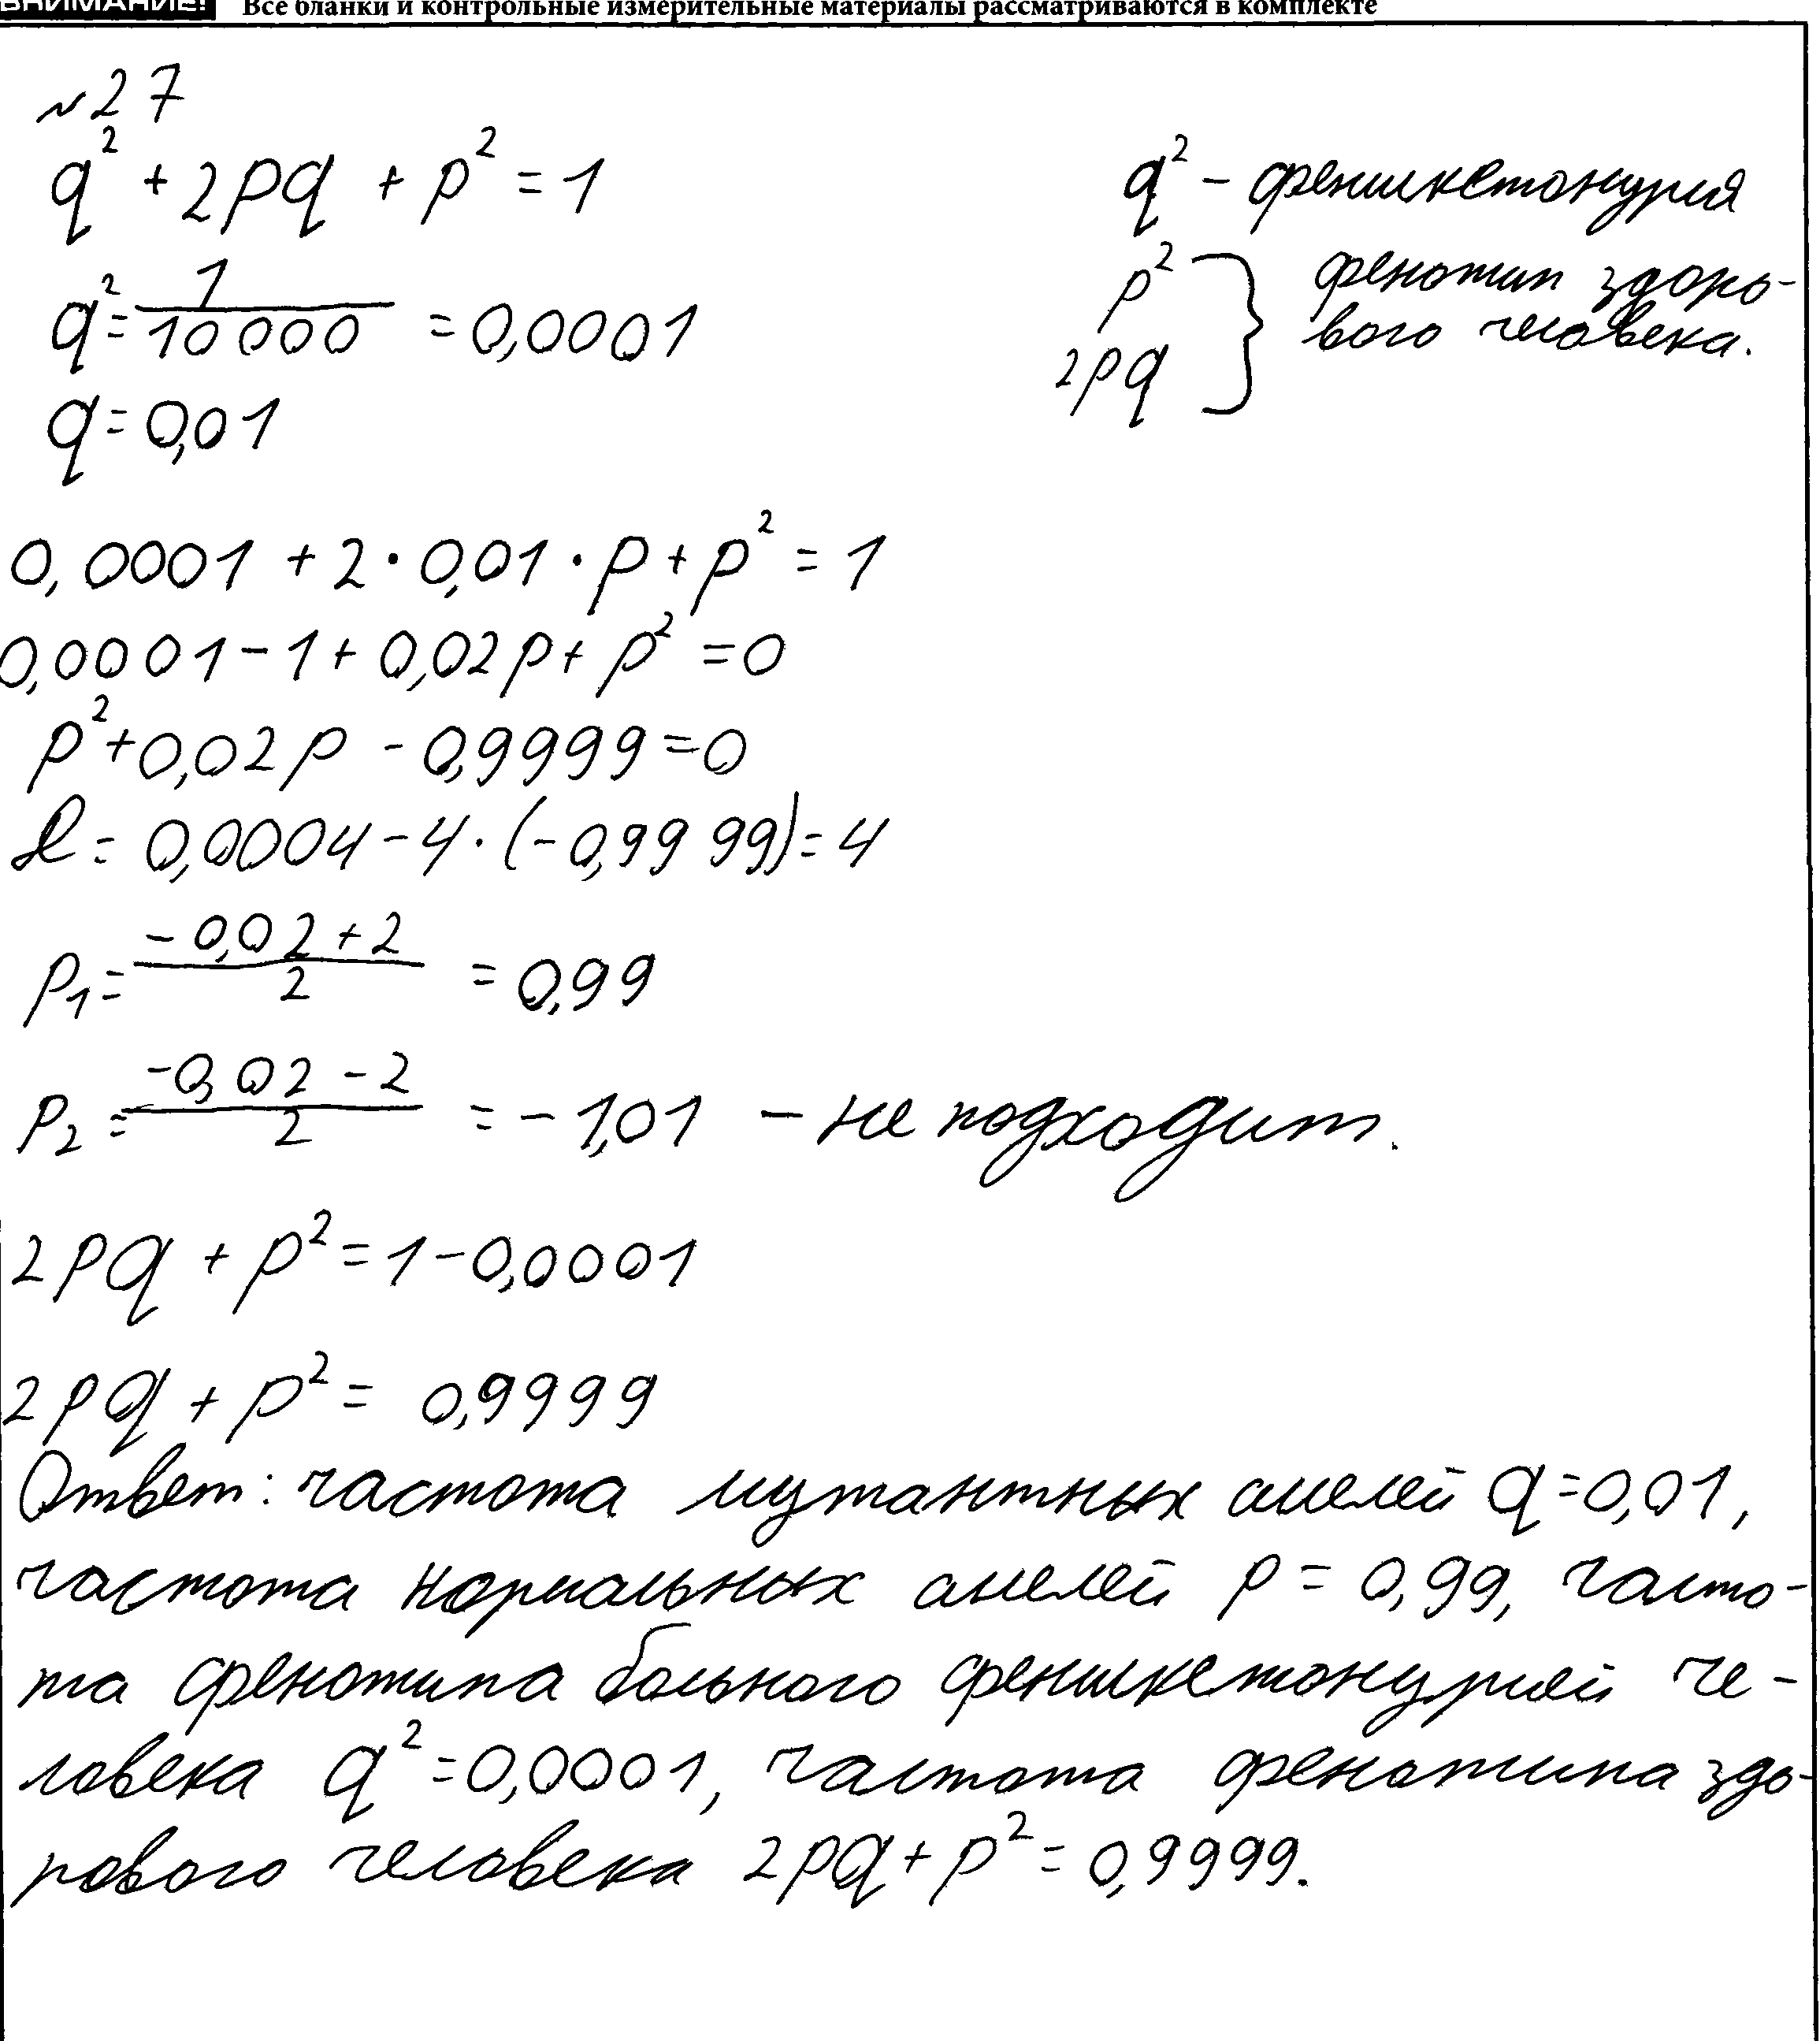 ВНИМАНИЕ! Все бланки и контрольные измерительные материалы рассматриваются в комплекте
№27
q² + 2pq + p² = 1
q² - фенилкетонурия
q² = 1/10 000 = 0,0001
p²
2pq } фенотип здоро-
вого человека.
q = 0,01
0,0001 + 2 · 0,01 · p + p² = 1
0,0001 - 1 + 0,02p + p² = 0
p² + 0,02p - 0,9999 = 0
D = 0,0004 - 4 · (-0,9999) = 4
p₁ = (-0,02 + 2)/2 = 0,99
p₂ = (-0,02 - 2)/2 = -1,01 - не подходит.
2pq + p² = 1 - 0,0001
2pq + p² = 0,9999
Ответ: частота мутантных аллелей q = 0,01,
частота нормальных аллелей p = 0,99, часто-
та фенотипа больного фенилкетонурией че-
ловека q² = 0,0001, частота фенотипа здо-
рового человека 2pq + p² = 0,9999.